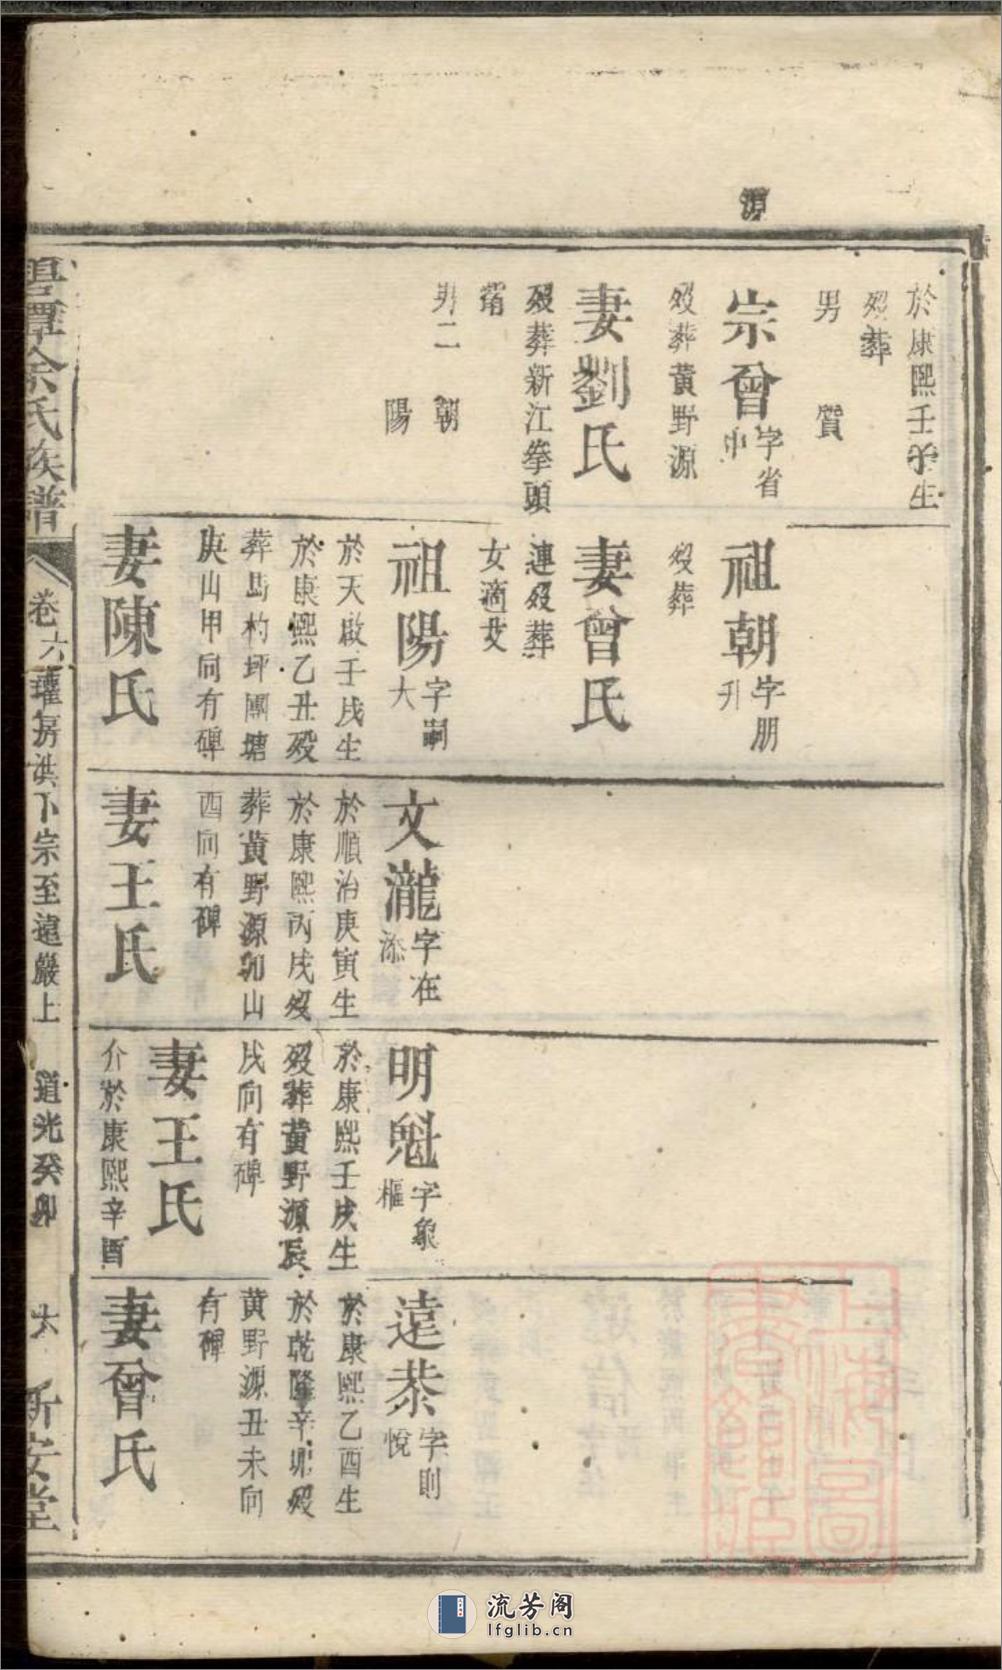 源
於康熙壬子生
歿葬
男 質
宗曾字省
中
歿葬黃野源
妻劉氏
歿葬新江拳頭
男二 朝
陽
祖朝字朋
升
歿葬
妻曾氏
連歿葬
女適艾
祖陽字嗣
大
於天啟壬戌生
於康熙乙丑歿
葬馬杓坪團塘
庚山甲向有碑
妻陳氏
文瀧字在
添
於順治庚寅生
於康熙丙戌歿
葬黃野源卯山
酉向有碑
妻王氏
明魁字象
樞
於康熙壬戌生
歿葬黃野源辰
戌向有碑
妻王氏
介於康熙辛酉
遠恭字則
悅
於康熙乙酉生
於乾隆辛卯歿
黃野源丑未向
有碑
妻曾氏
碧潭余氏族譜
卷六 瓘房洪卜宗至遠嚴上 道光癸卯 六 新安堂
上海圖書館藏
流芳阁
lfglib.cn